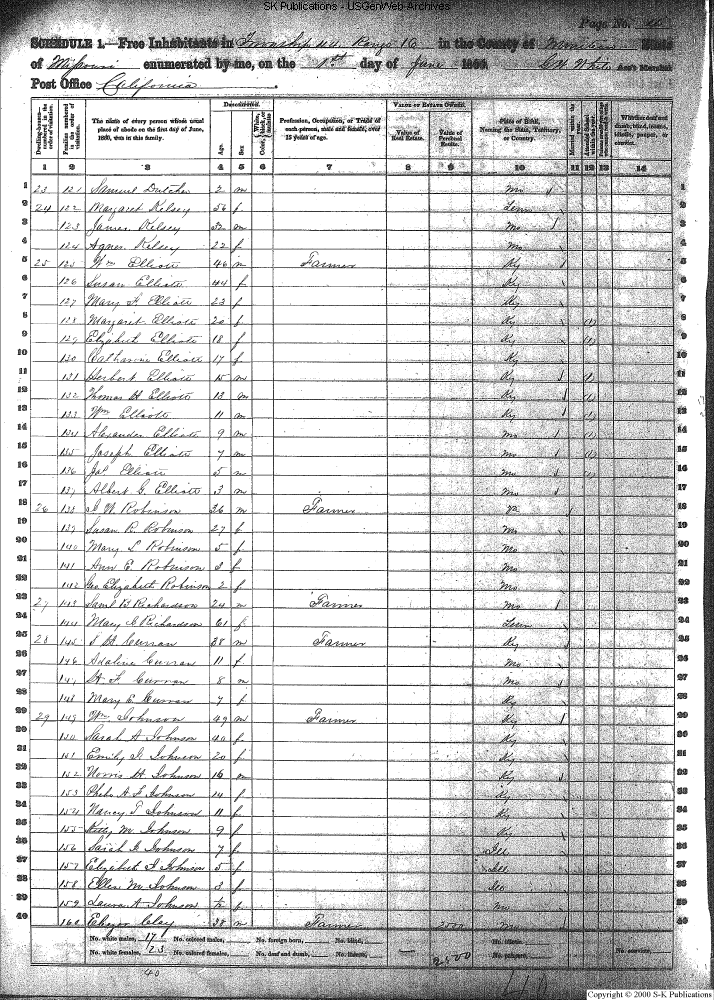 SK Publications - USGenWeb-Archives
Page No.
SCHEDULE 1.—Free Inhabitants in Township 44 Range 16 in the County of State
of Missouri enumerated by me, on the 1st day of June 1860. Ass't Marshal
Post Office California
Dwelling-houses— numbered in the order of visitation. Families numbered in the order of visitation. The name of every person whose usual place of abode on the first day of June, 1860, was in this family. Description. Age. Sex. Color, White, black, or mulatto. Profession, Occupation, or Trade of each person, male and female, over 15 years of age. Value of Estate Owned. Value of Real Estate. Value of Personal Estate. Place of Birth, Naming the State, Territory, or Country. Married within the year. Whether deaf and dumb, blind, insane, idiotic, pauper, or convict.
1 2 3 4 5 6 7 8 9 10 11 12 13 14
1 23 121 Samuel Dutcher 2 m Mo 1
2 24 122 Margaret Kelsey 56 f Tenn 2
3 123 James Kelsey 32 m Mo 3
4 124 Agnes Kelsey 22 f Mo 4
5 25 125 Wm Elliott 46 m Farmer Ky 5
6 126 Susan Elliott 44 f Ky 6
7 127 Mary F Elliott 23 f Ky 7
8 128 Margaret Elliott 20 f Ky (1) 8
9 129 Elizabeth Elliott 18 f Ky (1) 9
10 130 Catharine Elliott 17 f Ky 10
11 131 Herbert Elliott 15 m Ky (1) 11
12 132 Thomas H Elliott 13 m Ky (1) 12
13 133 Wm Elliott 11 m Ky (1) 13
14 134 Alexander Elliott 9 m Mo (1) 14
15 135 Joseph Elliott 7 m Mo (1) 15
16 136 Elliott 5 m Mo (1) 16
17 137 Albert G. Elliott 3 m Mo 17
18 26 138 W Robinson 36 m Farmer Va 18
19 139 Susan B. Robinson 27 f Mo 19
20 140 Mary L Robinson 5 f Mo 20
21 141 Ann E. Robinson 3 f Mo 21
22 142 Geo Elizabeth Robinson 2 f Mo 22
23 27 143 Saml B Richardson 24 m Farmer Mo 23
24 144 Mary C Richardson 61 f Tenn 24
25 28 145 Curran 38 m Farmer Ky 25
26 146 Adaline Curran 11 f Mo 26
27 147 Curran 8 m Mo 27
28 148 Mary E. Curran 7 f Ky 28
29 29 149 Wm Johnson 49 m Farmer Ky 29
30 150 Sarah A Johnson 40 f Ky 30
31 151 Emily J. Johnson 20 f Ky 31
32 152 Norris H Johnson 16 m Ky 32
33 153 Johnson 14 f Ky 33
34 154 Nancy T Johnson 11 f Ky 34
35 155 Kitty M Johnson 9 f Ky 35
36 156 Sarah Johnson 7 f Ill 36
37 157 Elizabeth J Johnson 5 f Ill 37
38 158 Ellen M Johnson 3 f Ill 38
39 159 Laura A Johnson f Mo 39
40 160 Clay 38 m Farmer 2500 Mo 40
No. white males, 17 No. colored males, No. foreign born, No. blind, No. idiotic,
No. white females, 23 No. colored females, No. deaf and dumb, No. insane, 2500 No. paupers, No. convicts,
40
Copyright © 2000 S-K Publications